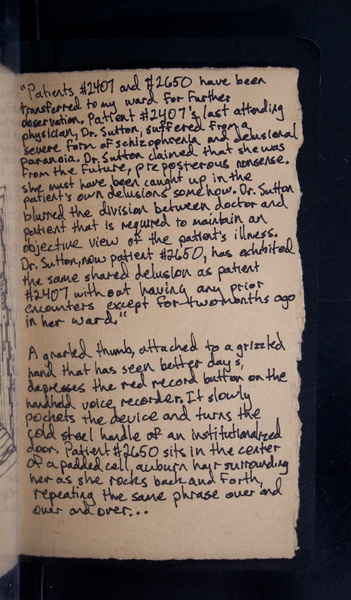 "Patients #2407 and #2650 have been
transferred to my ward for further
observation. Patient #2407's last attending
physician, Dr. Sutton, suffered from a
severe form of schizophrenia and delusional
paranoia. Dr. Sutton claimed that she was
from the future, preposterous nonsense.
She must have been caught up in the
patient's own delusions somehow. Dr. Sutton
blurred the division between doctor and
patient that is required to maintain an
objective view of the patient's illness.
Dr. Sutton, now patient #2650, has exhibited
the same shared delusion as patient
#2407 without having any prior
encounters except for two months ago
in her ward."
A gnarled thumb, attached to a grizzled
hand that has seen better days,
depresses the red record button on the
handheld voice recorder. It slowly
pockets the device and turns the
cold steel handle of an institutionalized
door. Patient #2650 sits in the center
of a padded cell, auburn hair surrounding
her as she rocks back and forth,
repeating the same phrase over and
over and over...